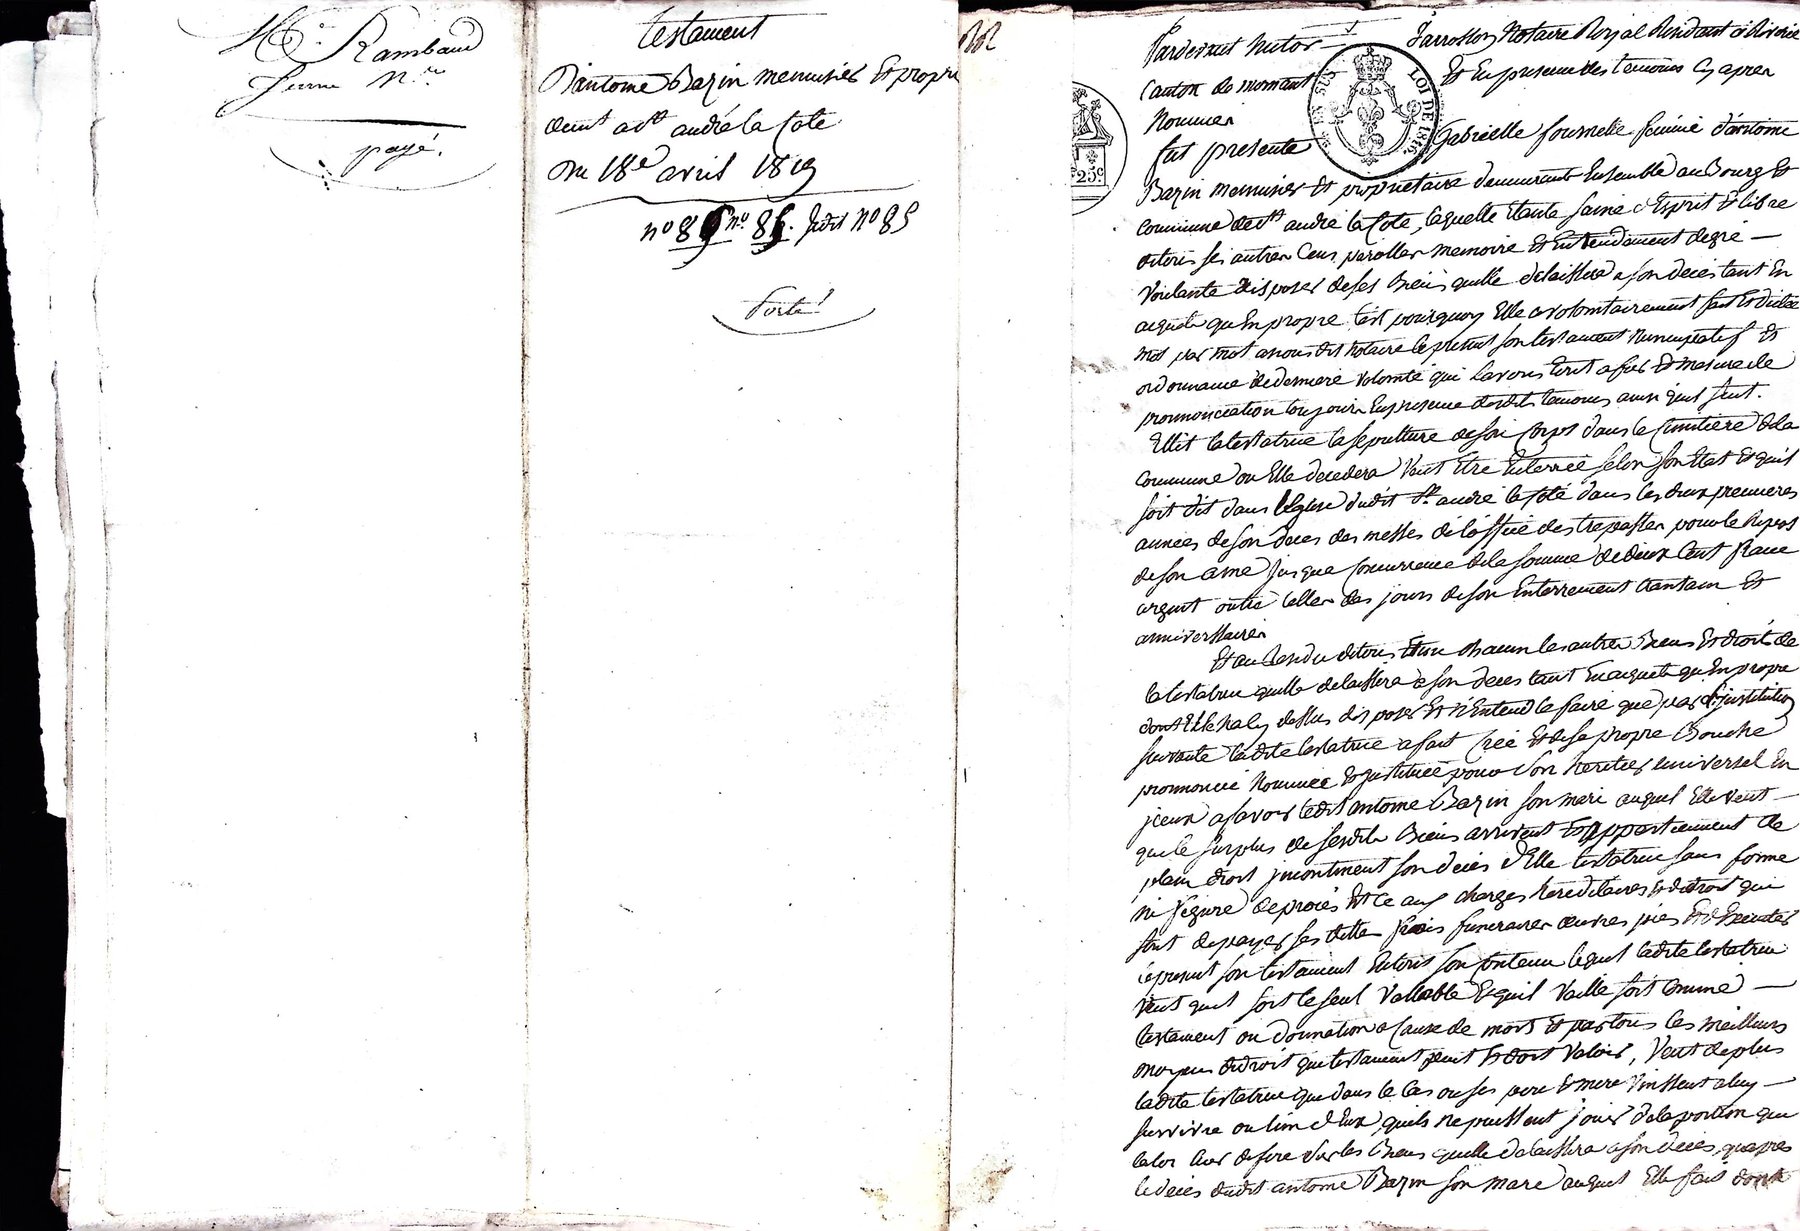 Me Rambaud
Jeune Nre
payé.
testament
D'antoine Bazin menuisier Et propre
deent a St andré la Cote
Du 18e avril 1819
no 85 no 85. Jndit No 85
Porté
Pardevant hutor farrossier Notaire Royal Residant à Riverie
Canton de mornant Et En presence des temoins Cy apres
Nommes
fut presente Gabrielle fournelle femme d'antoine
Bazin menuisier Et proprietaire demeurants Ensemble au Bourg Et
Commune de St andré la Cote, laquelle Etante saine d'Esprit Et libre
de tous ses autres Cens parolles memoire Et Entendement de gré —
Voulante disposer de ses Biens quelle delaissera a son deces tant En
acquets qu'En propre C'est pourquoy Elle a volontairement fait Et dicté
mot par mot a nous dit notaire le present son testament nuncupatif Et
ordonnance de derniere volonté qui L'avons Ecrit a fur Et mesure de
prononciation toujours En presence desdits temoins ainsi quil suit.
Ellit la testatrice la sepulture de son Corps dans le Cimitiere de la
Commune ou Elle decedera Veut Etre Enterrée selon son Etat Et quil
soit dit dans l'Eglise dudit St andré la Coté dans les deux premieres
années de son deces des messes de l'office des trepassés pour le Repos
de son ame jusque Concurrence de la somme de deux Cent francs
argent outre Celles des jours de son Enterrement Cantain Et
anniverssaire
Et au Residu de tous Et un Chacun les autres Biens Et droits de
la testatrice quelle delaissera a son deces tant En acquets qu'En propre
dont Elle n'a Cy dessus disposer Et n'Entend le faire que par L'institution
suivante ladite testatrice a fait Créé Et de sa propre Bouche
prononcé Nommée Et institué pour son heritier universel En
jceux a savoir ledit antoine Bazin son mari auquel Elle veut —
que le surplus de sesdits Biens arrivent Et appartiennent de
plein droit jncontinent son deces d'Elle testatrice sans forme
ni figure de proces Et Ce aux charges hereditaires Et de droit qui
sont de payer ses dettes frais funeraires œuvres pies Et d'Executer
le present son testament En tout son Contenu lequel ladite testatrice
veut quil soit le seul Vallable Et quil Vaille soit Comme —
testament ou donnation a Cause de mort Et par tous les meilleurs
moyens de droit que testament peut Et doit Valoir, Veut de plus
ladite testatrice que dans le Cas ou ses pere Et mere Vinssent a luy —
survivre ou l'un d'Eux, quils ne puissent jouir de la portion que
la loi leur defere sur les Biens quelle delaissera a son deces, qu'apres
le deces dudit antoine Bazin son mare auquel Elle fait dont
LOI DE 1816.
25c